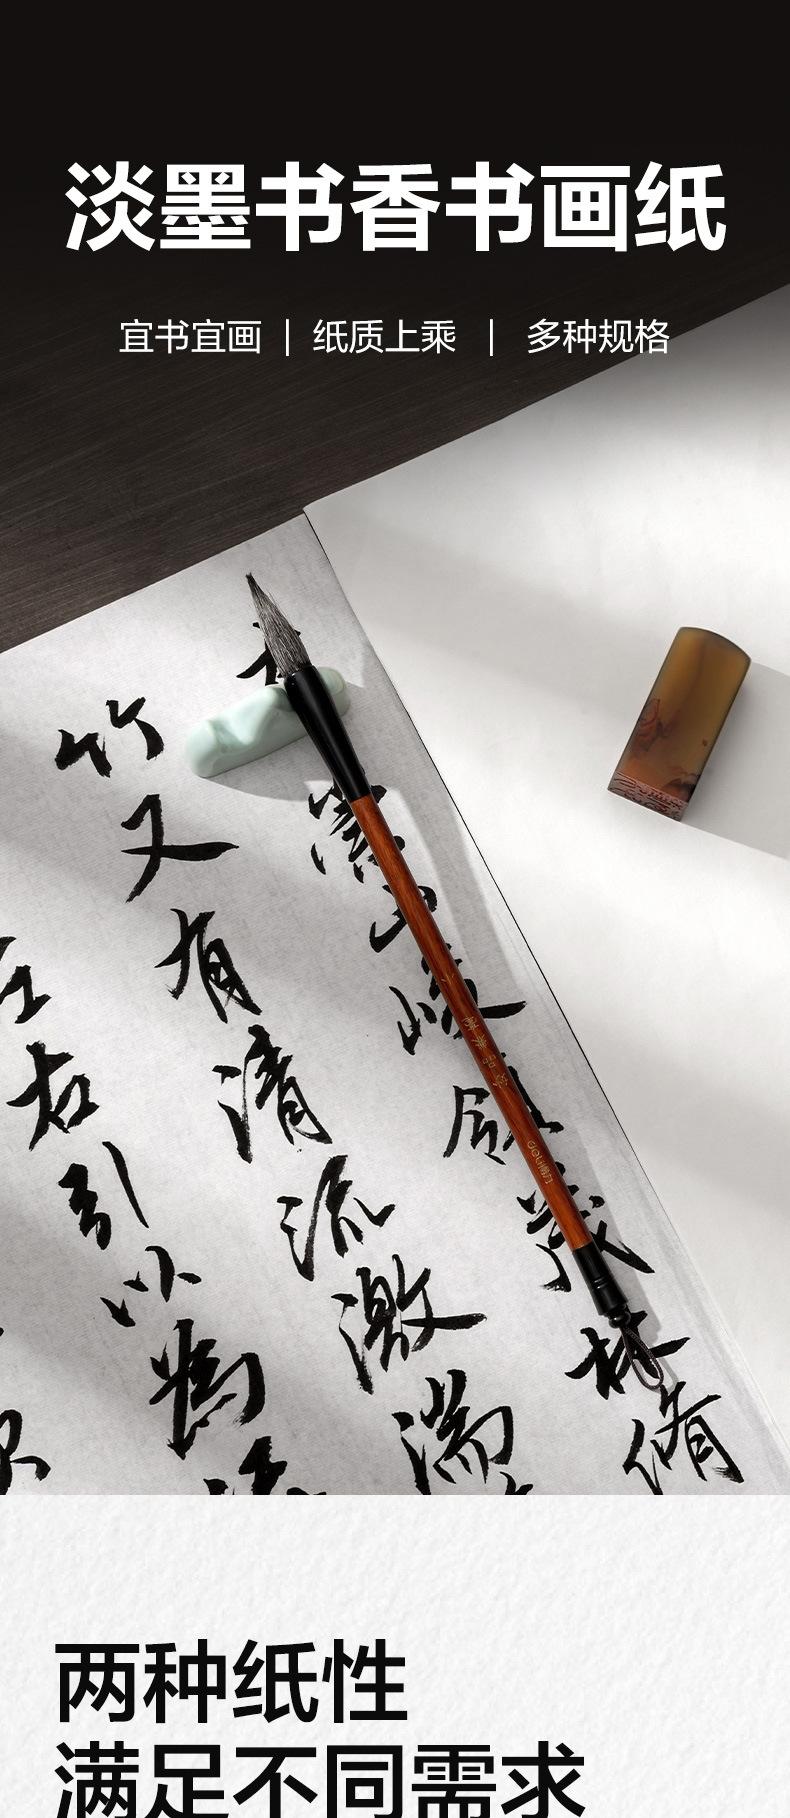 淡墨书香书画纸
宜书宜画 | 纸质上乘 | 多种规格
山峻领茂林脩
竹又有清流激湍
左右引以為
两种纸性
满足不同需求